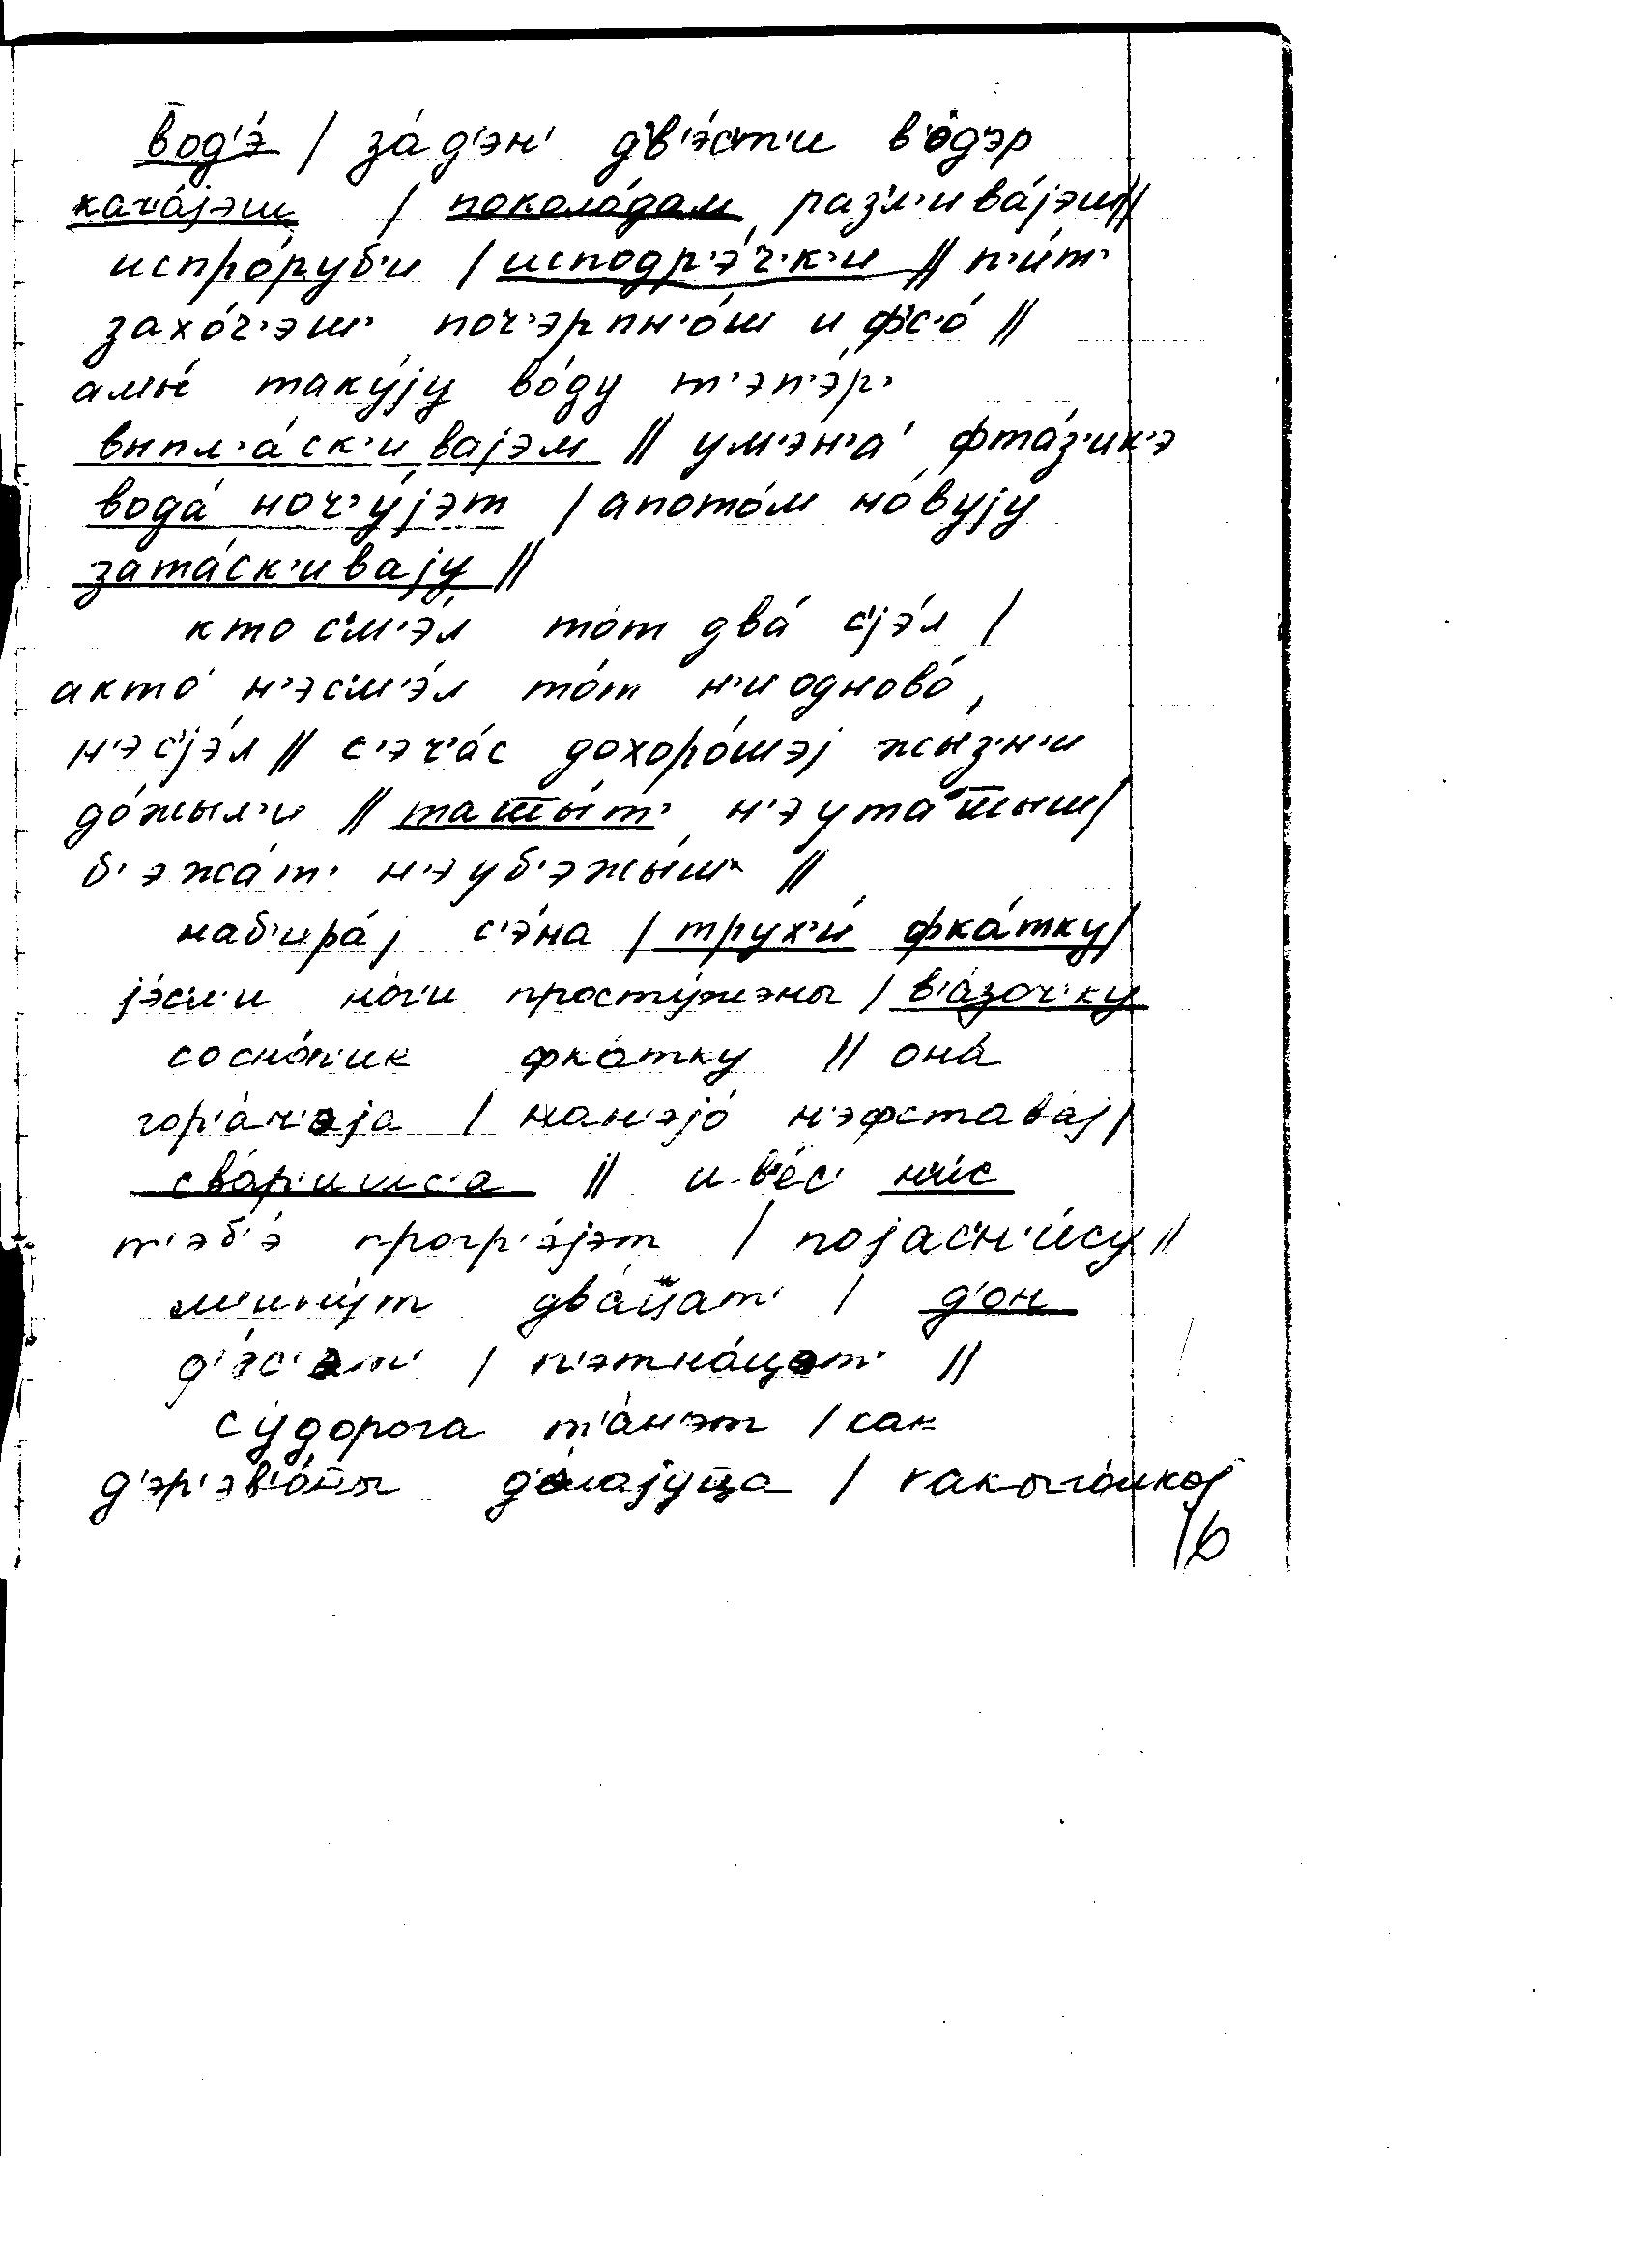 вод'э́ / за́ д'эн' д'в'э́ст'и в'о́д'эр
кача́jэш / поколо́дам раз'л'ива́jэш //
испро́руб'и / исподр'э́ч'к'и // п'и́т'
захо́ч'эш' поч'эрпн'о́ш и ф'с'о́ //
амы́ таку́jу во́ду т'эп'э́р'
выпл'а́ск'иваjэм // ум'эн'а́ фта́з'ик'э
вода́ ноч'у́jэт / апото́м но́вуjу
зата́ск'иваjу //
кто с'м'э́л то́т два́ с'jэ́л /
акто́ н'эс'м'э́л то́т н'иодново́
н'эс'jэ́л // с'эч'а́с дохоро́шэj жы́з'н'и
до́жыл'и // таш̅ы́т' н'эута́ш̅ыш /
б'эжа́т' н'эуб'эжы́ш //
наб'ира́j с'э́на / трух'и́ фка́тку /
jэ́с'л'и но́г'и просту́жэны / в'а́зоч'ку
сосно́п'ик фка́тку // она́
гор'а́ч'эjа / нан'эjо́ н'эфстава́j /
сва́р'ишс'а // и в'е́с' ни́с
т'эб'э́ прогр'э́jэт / поjас'н'и́су //
м'ину́т два́ц̅ат' / д'он
д'э́с'эт' / п'этна́цэт' //
су́дорога т'а́н'эт / как
д'эр'эв'а́ш̅ы д'э́лаjуц̅а /
16